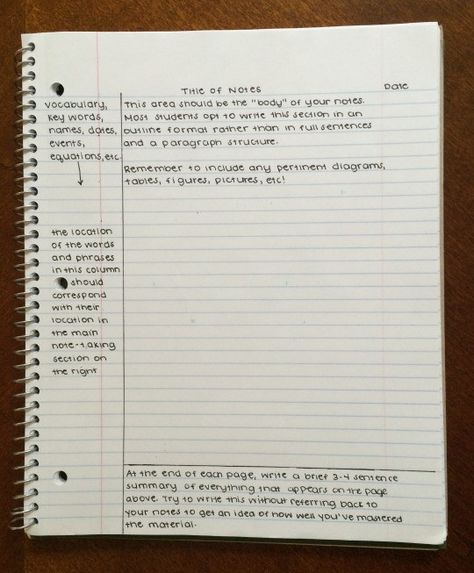 Title of Notes Date
vocabulary,
key words,
names, dates,
events,
equations, etc.
This area should be the "body" of your notes.
Most students opt to write this section in an
outline format rather than in full sentences
and a paragraph structure.
Remember to include any pertinent diagrams,
tables, figures, pictures, etc!
the location
of the words
and phrases
in this column
should
correspond
with their
location in
the main
note-taking
section on
the right
At the end of each page, write a brief 3-4 sentence
summary of everything that appears on the page
above. Try to write this without referring back to
your notes to get an idea of how well you've mastered
the material.